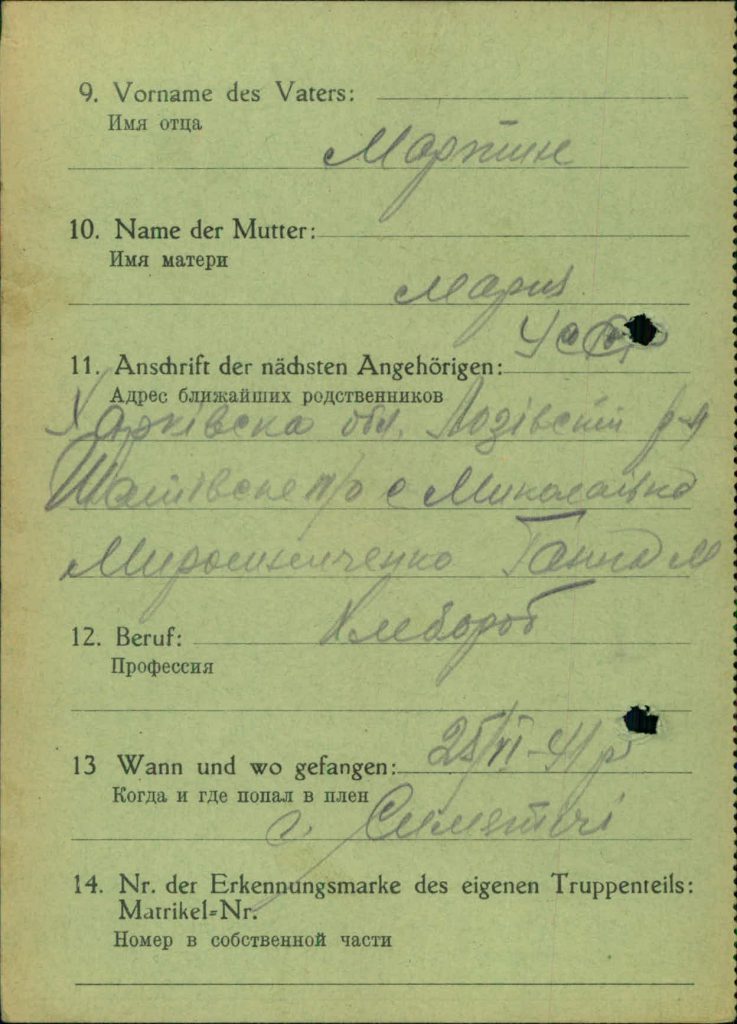 9. Vorname des Vaters:
Имя отца
Мартин
10. Name der Mutter:
Имя матери
Мария
УССР
11. Anschrift der nächsten Angehörigen:
Адрес ближайших родственников
Харківска обл. Лозівский р-н
с
Мирошниченко Ганна М
12. Beruf:
Хлебороб
Профессия
13 Wann und wo gefangen:
25/VI-41 р
Когда и где попал в плен
г.
14. Nr. der Erkennungsmarke des eigenen Truppenteils:
Matrikel=Nr.
Номер в собственной части